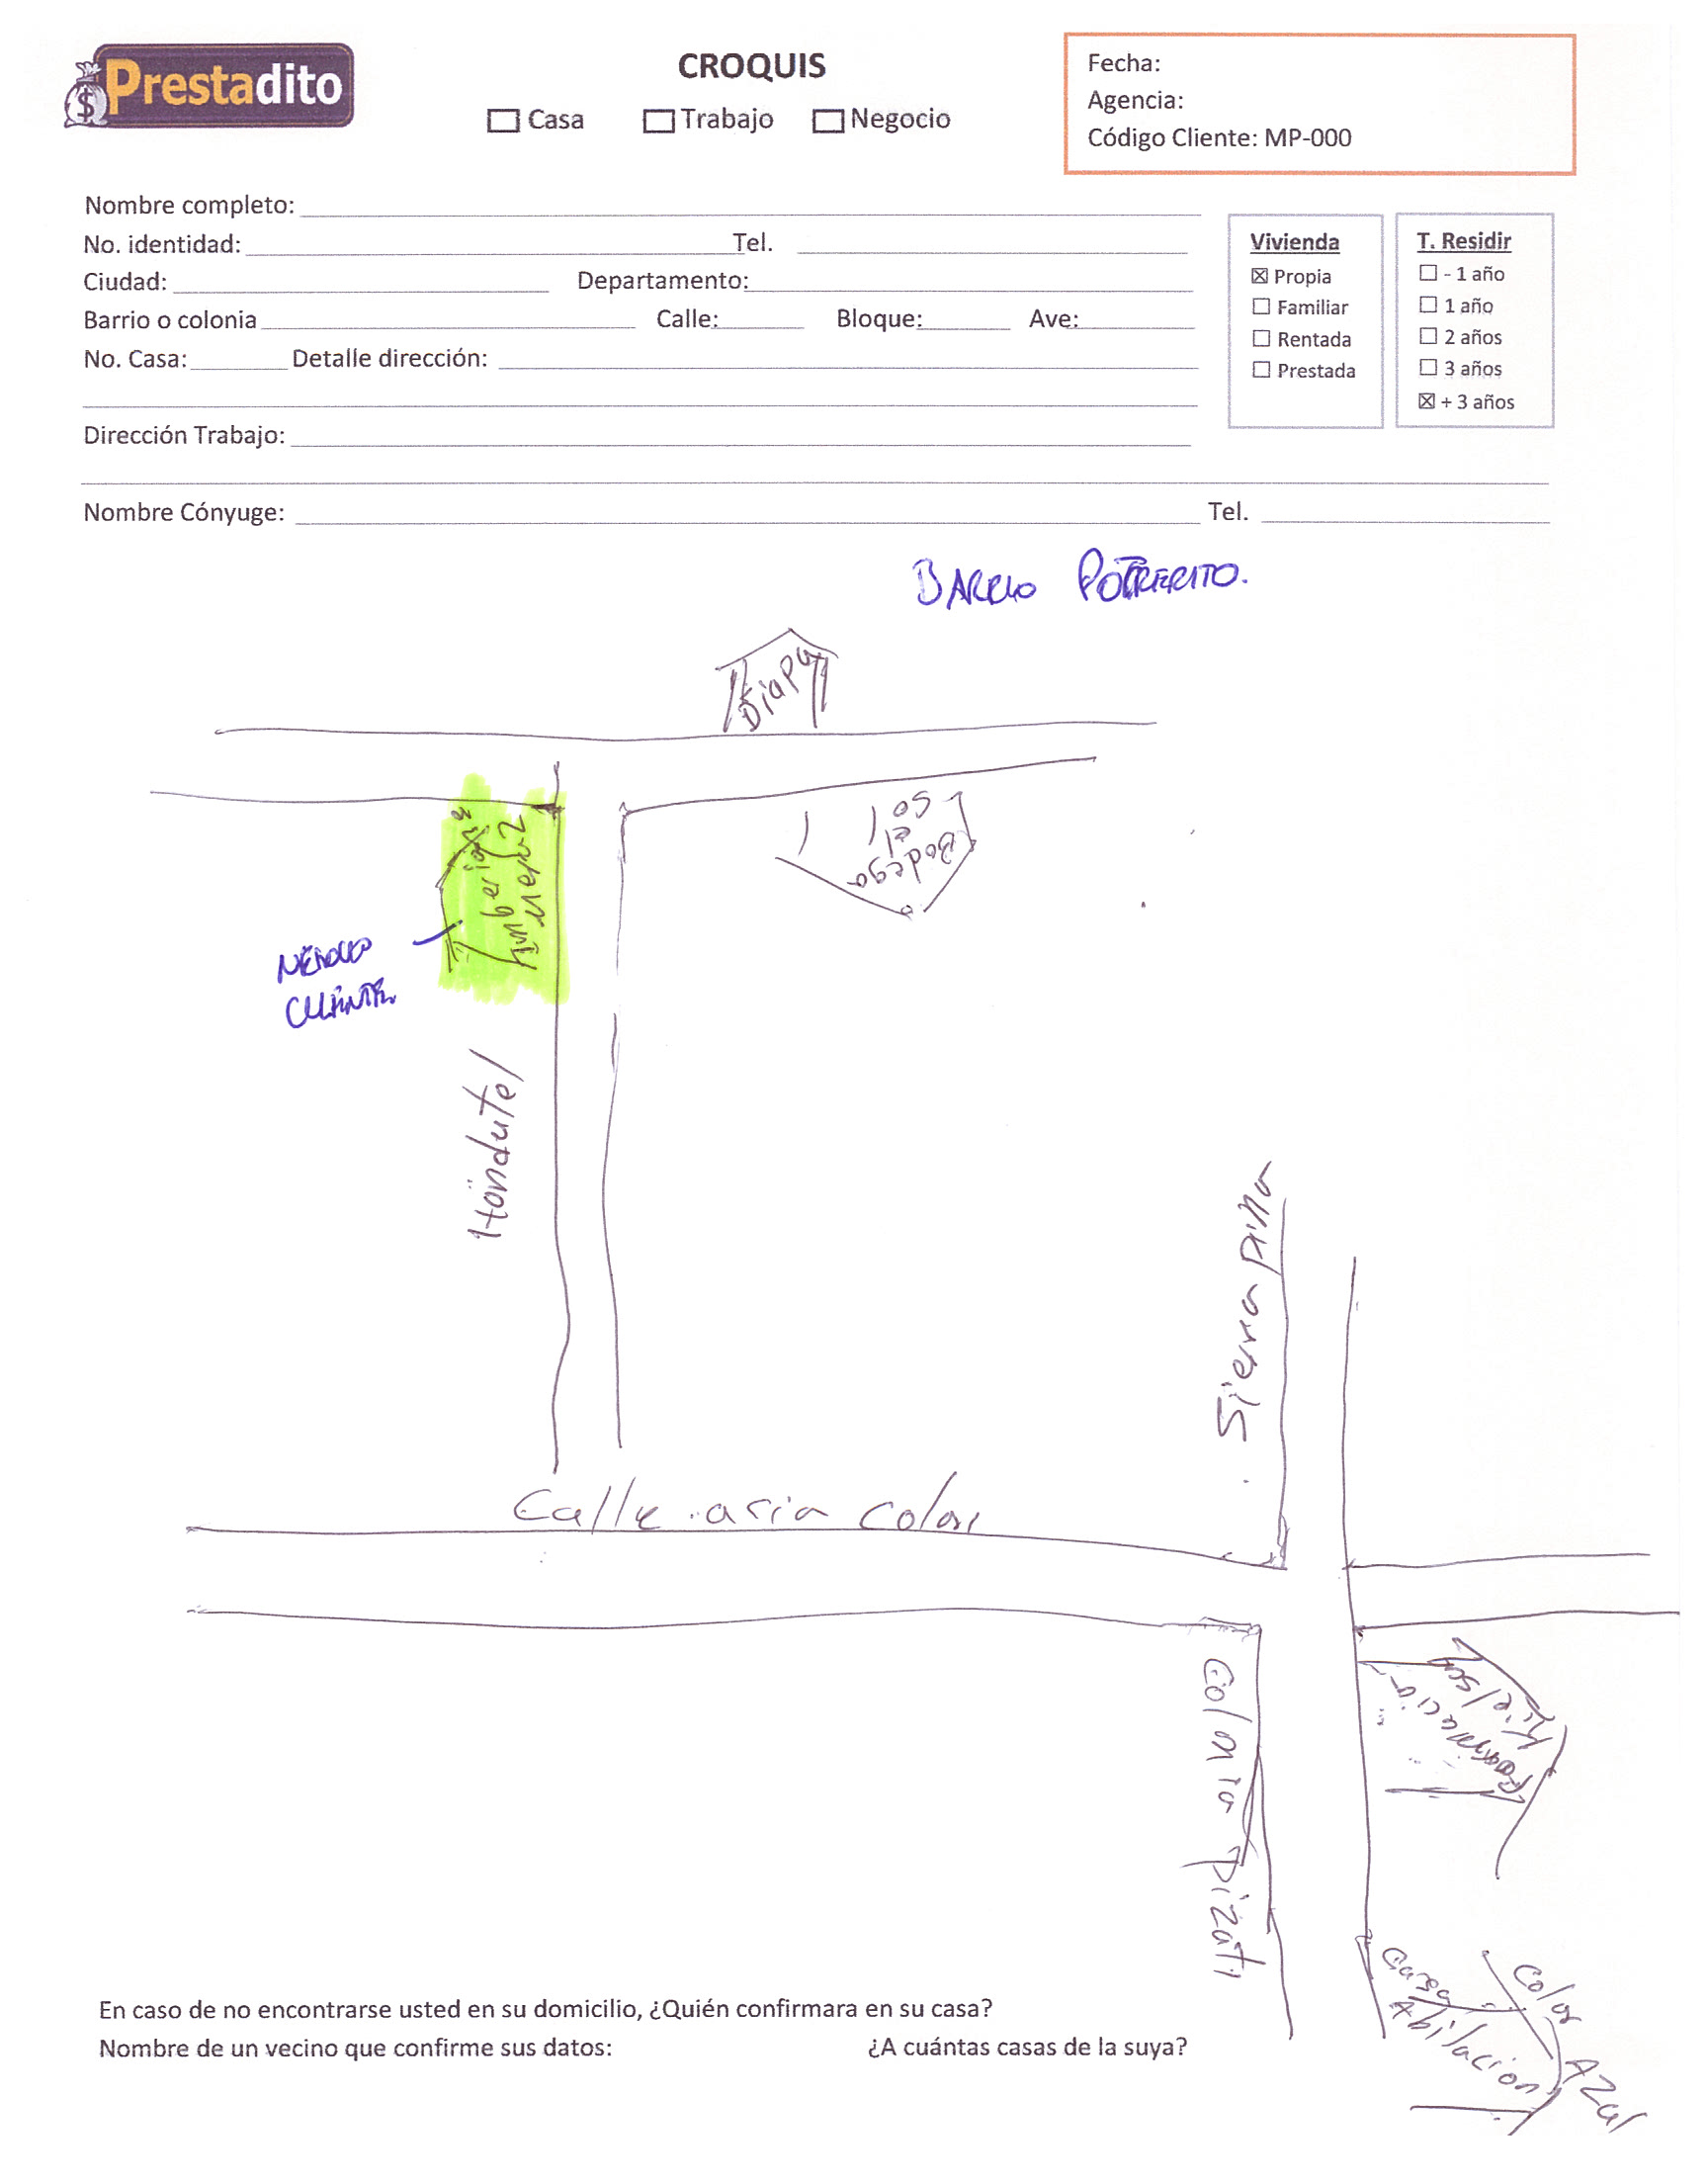 Prestadito
CROQUIS
☐ Casa ☐ Trabajo ☐ Negocio
Fecha:
Agencia:
Código Cliente: MP-000
Nombre completo:
No. identidad: Tel.
Ciudad: Departamento:
Barrio o colonia Calle: Bloque: Ave:
No. Casa: Detalle dirección:
Dirección Trabajo:
Nombre Cónyuge: Tel.
Vivienda
☒ Propia
☐ Familiar
☐ Rentada
☐ Prestada
T. Residir
☐ - 1 año
☐ 1 año
☐ 2 años
☐ 3 años
☒ + 3 años
BARRIO POTRERITO.
Diapa
Bodega
el
sol
CLIENTE
Hondutel
Sierra
Calle asia color
Colonia
Casa
Color
AZul
Abilacion
En caso de no encontrarse usted en su domicilio, ¿Quién confirmara en su casa?
Nombre de un vecino que confirme sus datos: ¿A cuántas casas de la suya?